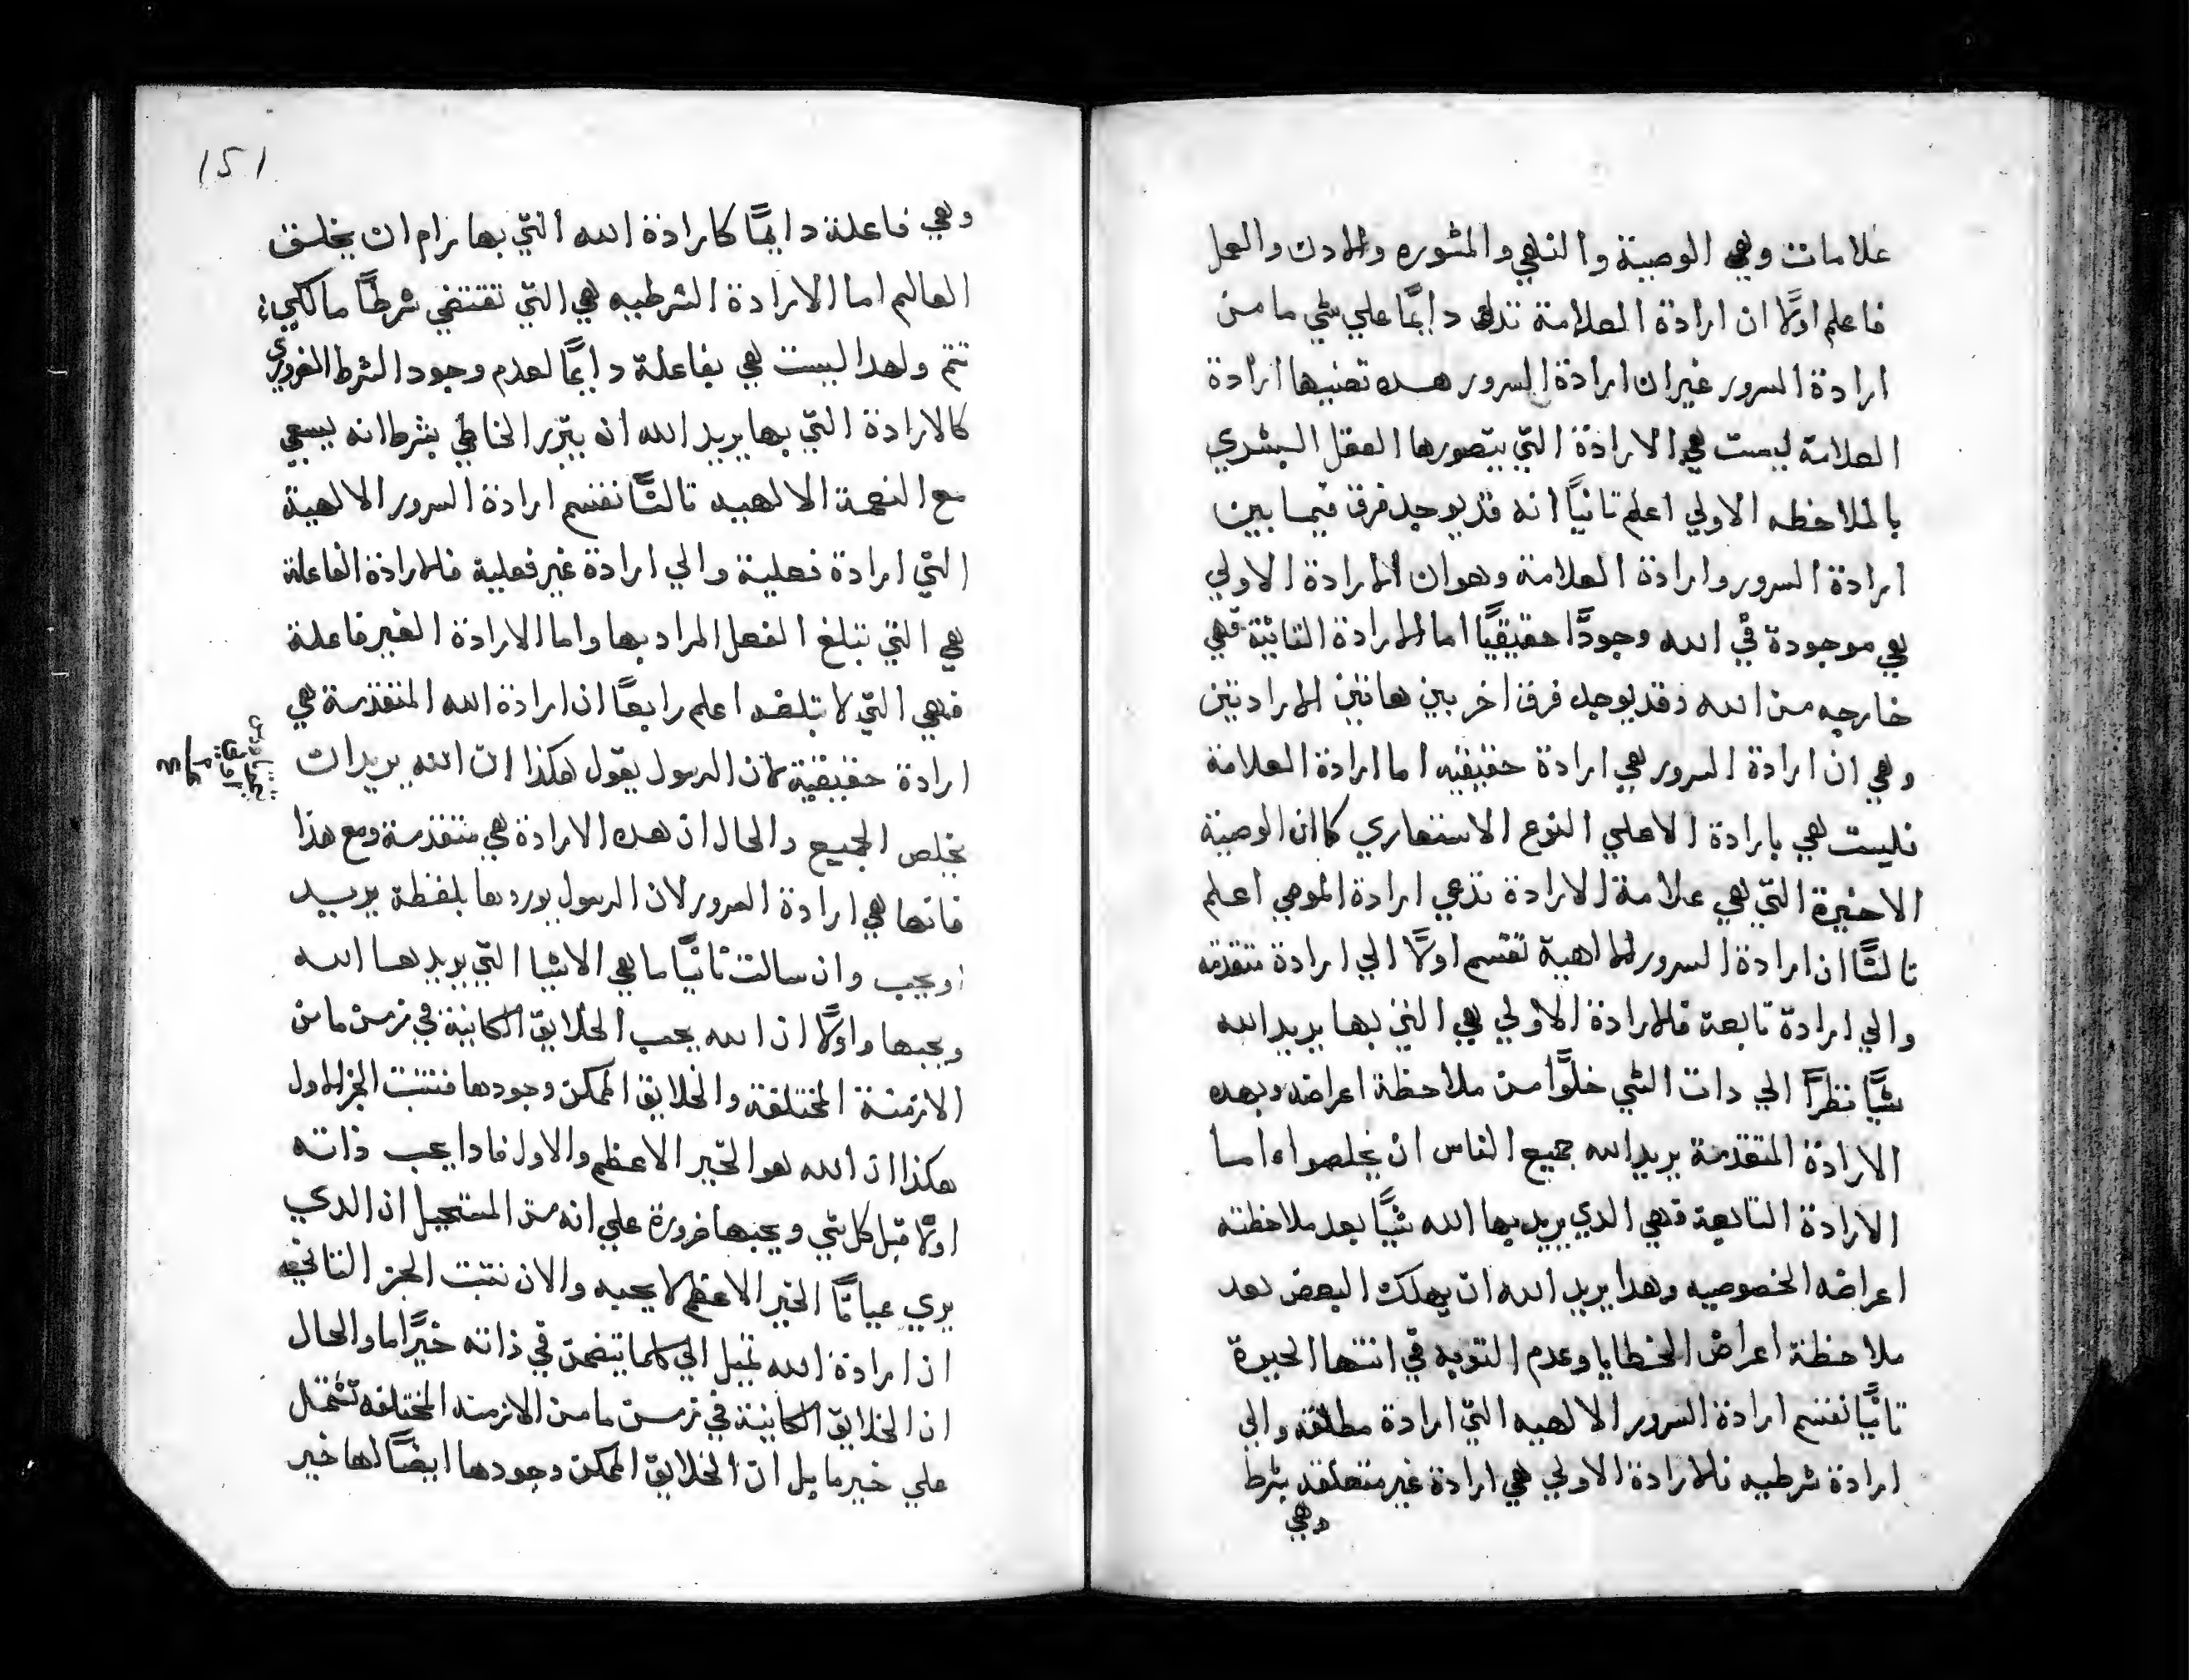 علامات وهي الوصية والنهي والمشوره والادن والعمل
فاعلم اولًا ان ارادة العلامة تدعى دايمًا علي شي ما من
ارادة السرور غير ان ارادة السرور هده تعنيها ارادة
العلامة ليست هي الارادة التي يتصورها العقل البشري
بالملاحظه الاولي اعلم تانيًا انه قد يوجد فرق فيما بين
ارادة السرور وارادة العلامة وهو ان الارادة الاولي
هي موجودة في الله وجودًا حقيقيًا اما الارادة التانية فهي
خارجه من الله وقد يوجد فرق اخر بين هاتين الارادتين
وهي ان ارادة السرور هي ارادة حقيقيه اما ارادة العلامة
فليست هي بارادة الا علي النوع الاستعاري كما ان الوصية
الاخيرة التي هي علامة الارادة تدعي ارادة الموصي اعلم
تالتًا ان ارادة السرور الالاهية تقسم اولًا الي ارادة متقدمة
والي ارادة تابعة فالارادة الاولي هي التي بها يريد الله
شيًا نظرًا الي دات الشي خلوًا من ملاحظة اعراضه وبهده
الارادة المتقدمة يريد الله جميع الناس ان يخلصوا اما
الارادة التابعة فهي الدي يريد بها الله شيًا بعد ملاحظته
اعراضه الخصوصيه وهدا يريد الله ان يهلك البعض بعد
ملاحظة اعراض الخطايا وعدم التوبه في انتها الحيوة
تانيًا تقسم ارادة السرور الالهيه الي ارادة مطلقه والي
ارادة شرطيه فالارادة الاولي هي ارادة غير متعلقه بشرط
وهي
151
وهي فاعلة دايمًا كارادة الله التي بها رام ان يخلق
العالم اما الارادة الشرطيه هي التي تقتضي شرطًا ما لكي
تتم ولهدا ليست هي بفاعلة دايمًا لعدم وجود الشرط الضروري
كالارادة التي بها يريد الله ان يبرر الخاطي بشرط انه يسعي
مع النعمة الالهيه تالتًا تقسم ارادة السرور الالهية
الي ارادة فعلية والي ارادة غير فعلية فالارادة الفاعلة
هي التي تبلغ الفعل المراد بها واما الارادة الغير فاعلة
فهي التي لا تبلغه اعلم رابعًا ان ارادة الله المتقدمة هي
ارادة حقيقية لان الرسول يقول هكذا ان الله يريد ان
يخلص الجميع والحال ان هده الارادة هي متقدمة ومع هذا
فانها هي ارادة السرور لان الرسول يوردها بلفظة يريد
او يحب وان سالت ثانيًا ما هي الاشيا التي يريدها الله
ويحبها واولًا ان الله يحب الخلايق الكاينة في زمن ما من
الازمنة المختلفة والخلايق الممكن وجودها فنتبت الجز الاول
هكذا ان الله هو الخير الاعظم والاول فادا يحب ذاته
اولًا قبل كل شي ويحبها ضرورة علي انه من المستحيل ان الدي
يري عيانًا الخير الاعظم لا يحبه والان نتبت الجز التاني
ان ارادة الله تميل الي كلما يتضمن في ذاته خيرًا ما والحال
ان الخلايق الكاينة في زمن ما من الازمنه المختلفه تشتمل
علي خير ما بل ان الخلايق الممكن وجودها ايضًا لها خير